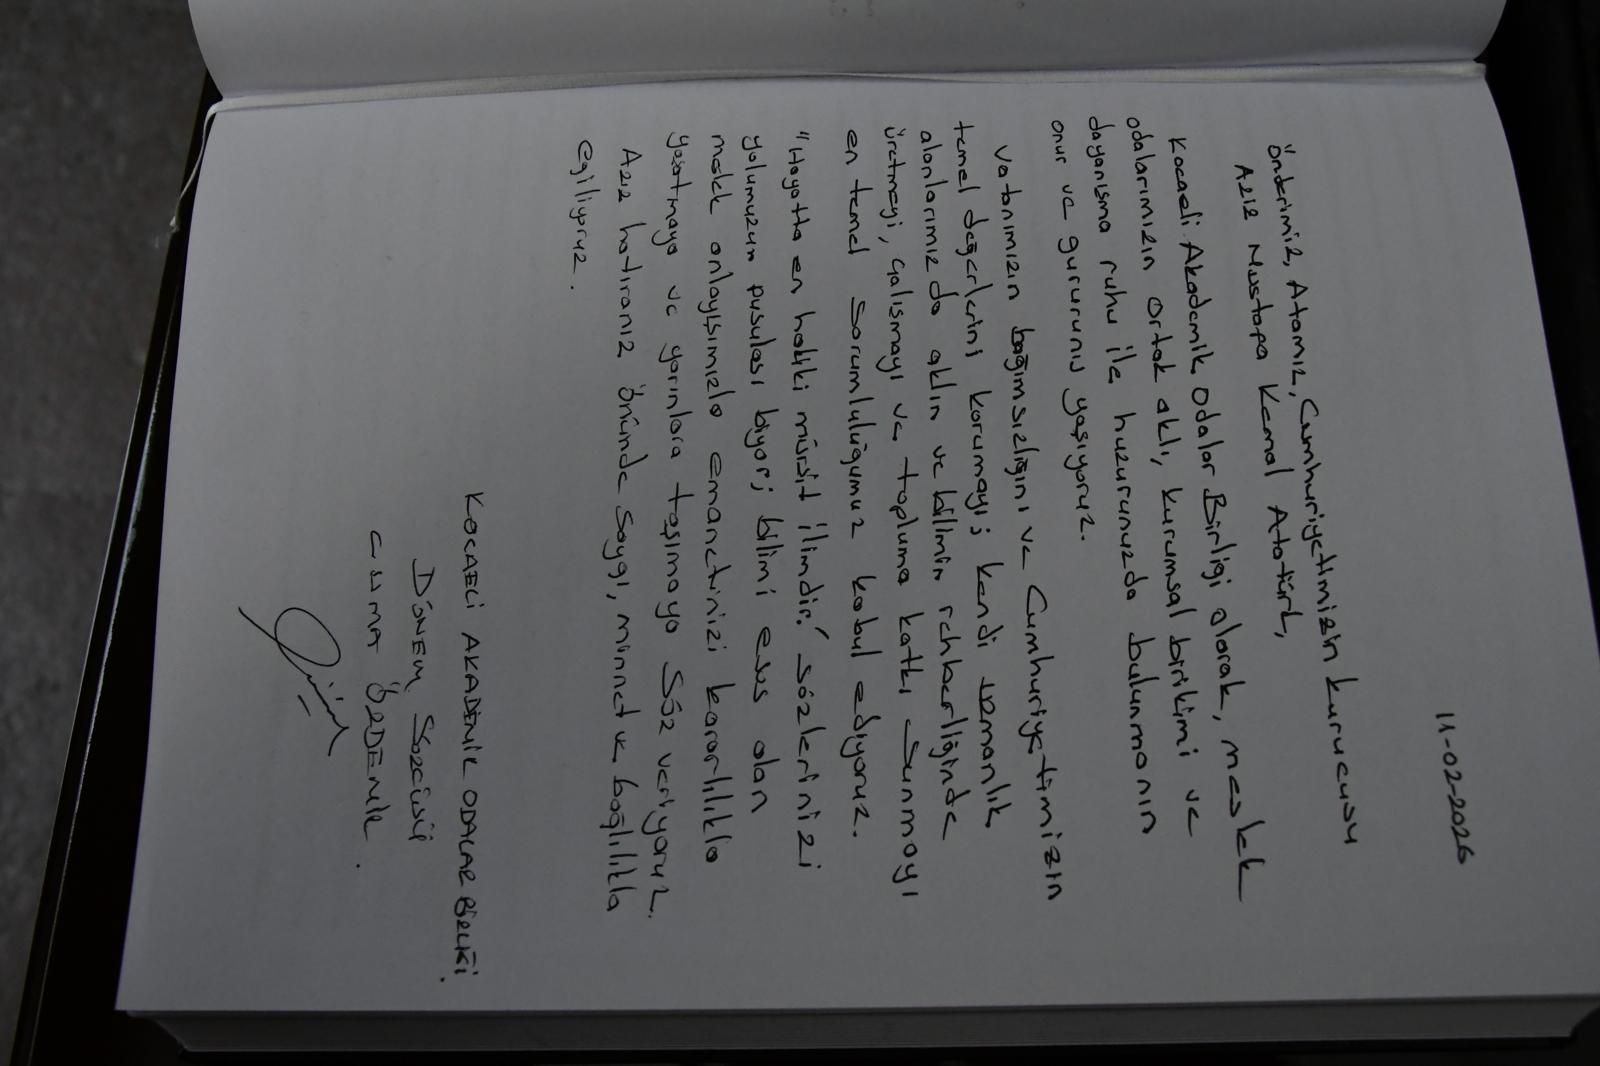 11-02-2026
Önderimiz, Atamız, Cumhuriyetimizin kurucusu
Aziz Mustafa Kemal Atatürk,
Kocaeli Akademik Odalar Birliği olarak, meslek
odalarımızın ortak aklı, kurumsal birikimi ve
dayanışma ruhu ile huzurunuzda bulunmanın
onur ve gururunu yaşıyoruz.
Vatanımızın bağımsızlığını ve Cumhuriyetimizin
temel değerlerini korumayı; kendi uzmanlık
alanlarımızda aklın ve bilimin rehberliğinde
üretmeyi, çalışmayı ve topluma katkı sunmayı
en temel sorumluluğumuz kabul ediyoruz.
"Hayatta en hakiki mürşit ilimdir." sözlerinizi
yolumuzun pusulası biliyor; bilimi esas alan
meslek anlayışımızla emanetinizi kararlılıkla
yaşatmaya ve yarınlara taşımaya söz veriyoruz.
Aziz hatıranız önünde saygı, minnet ve bağlılıkla
eğiliyoruz.
KOCAELİ AKADEMİK ODALAR BİRLİĞİ
DÖNEM Sözcüsü
CUMA ÖZDEMİR